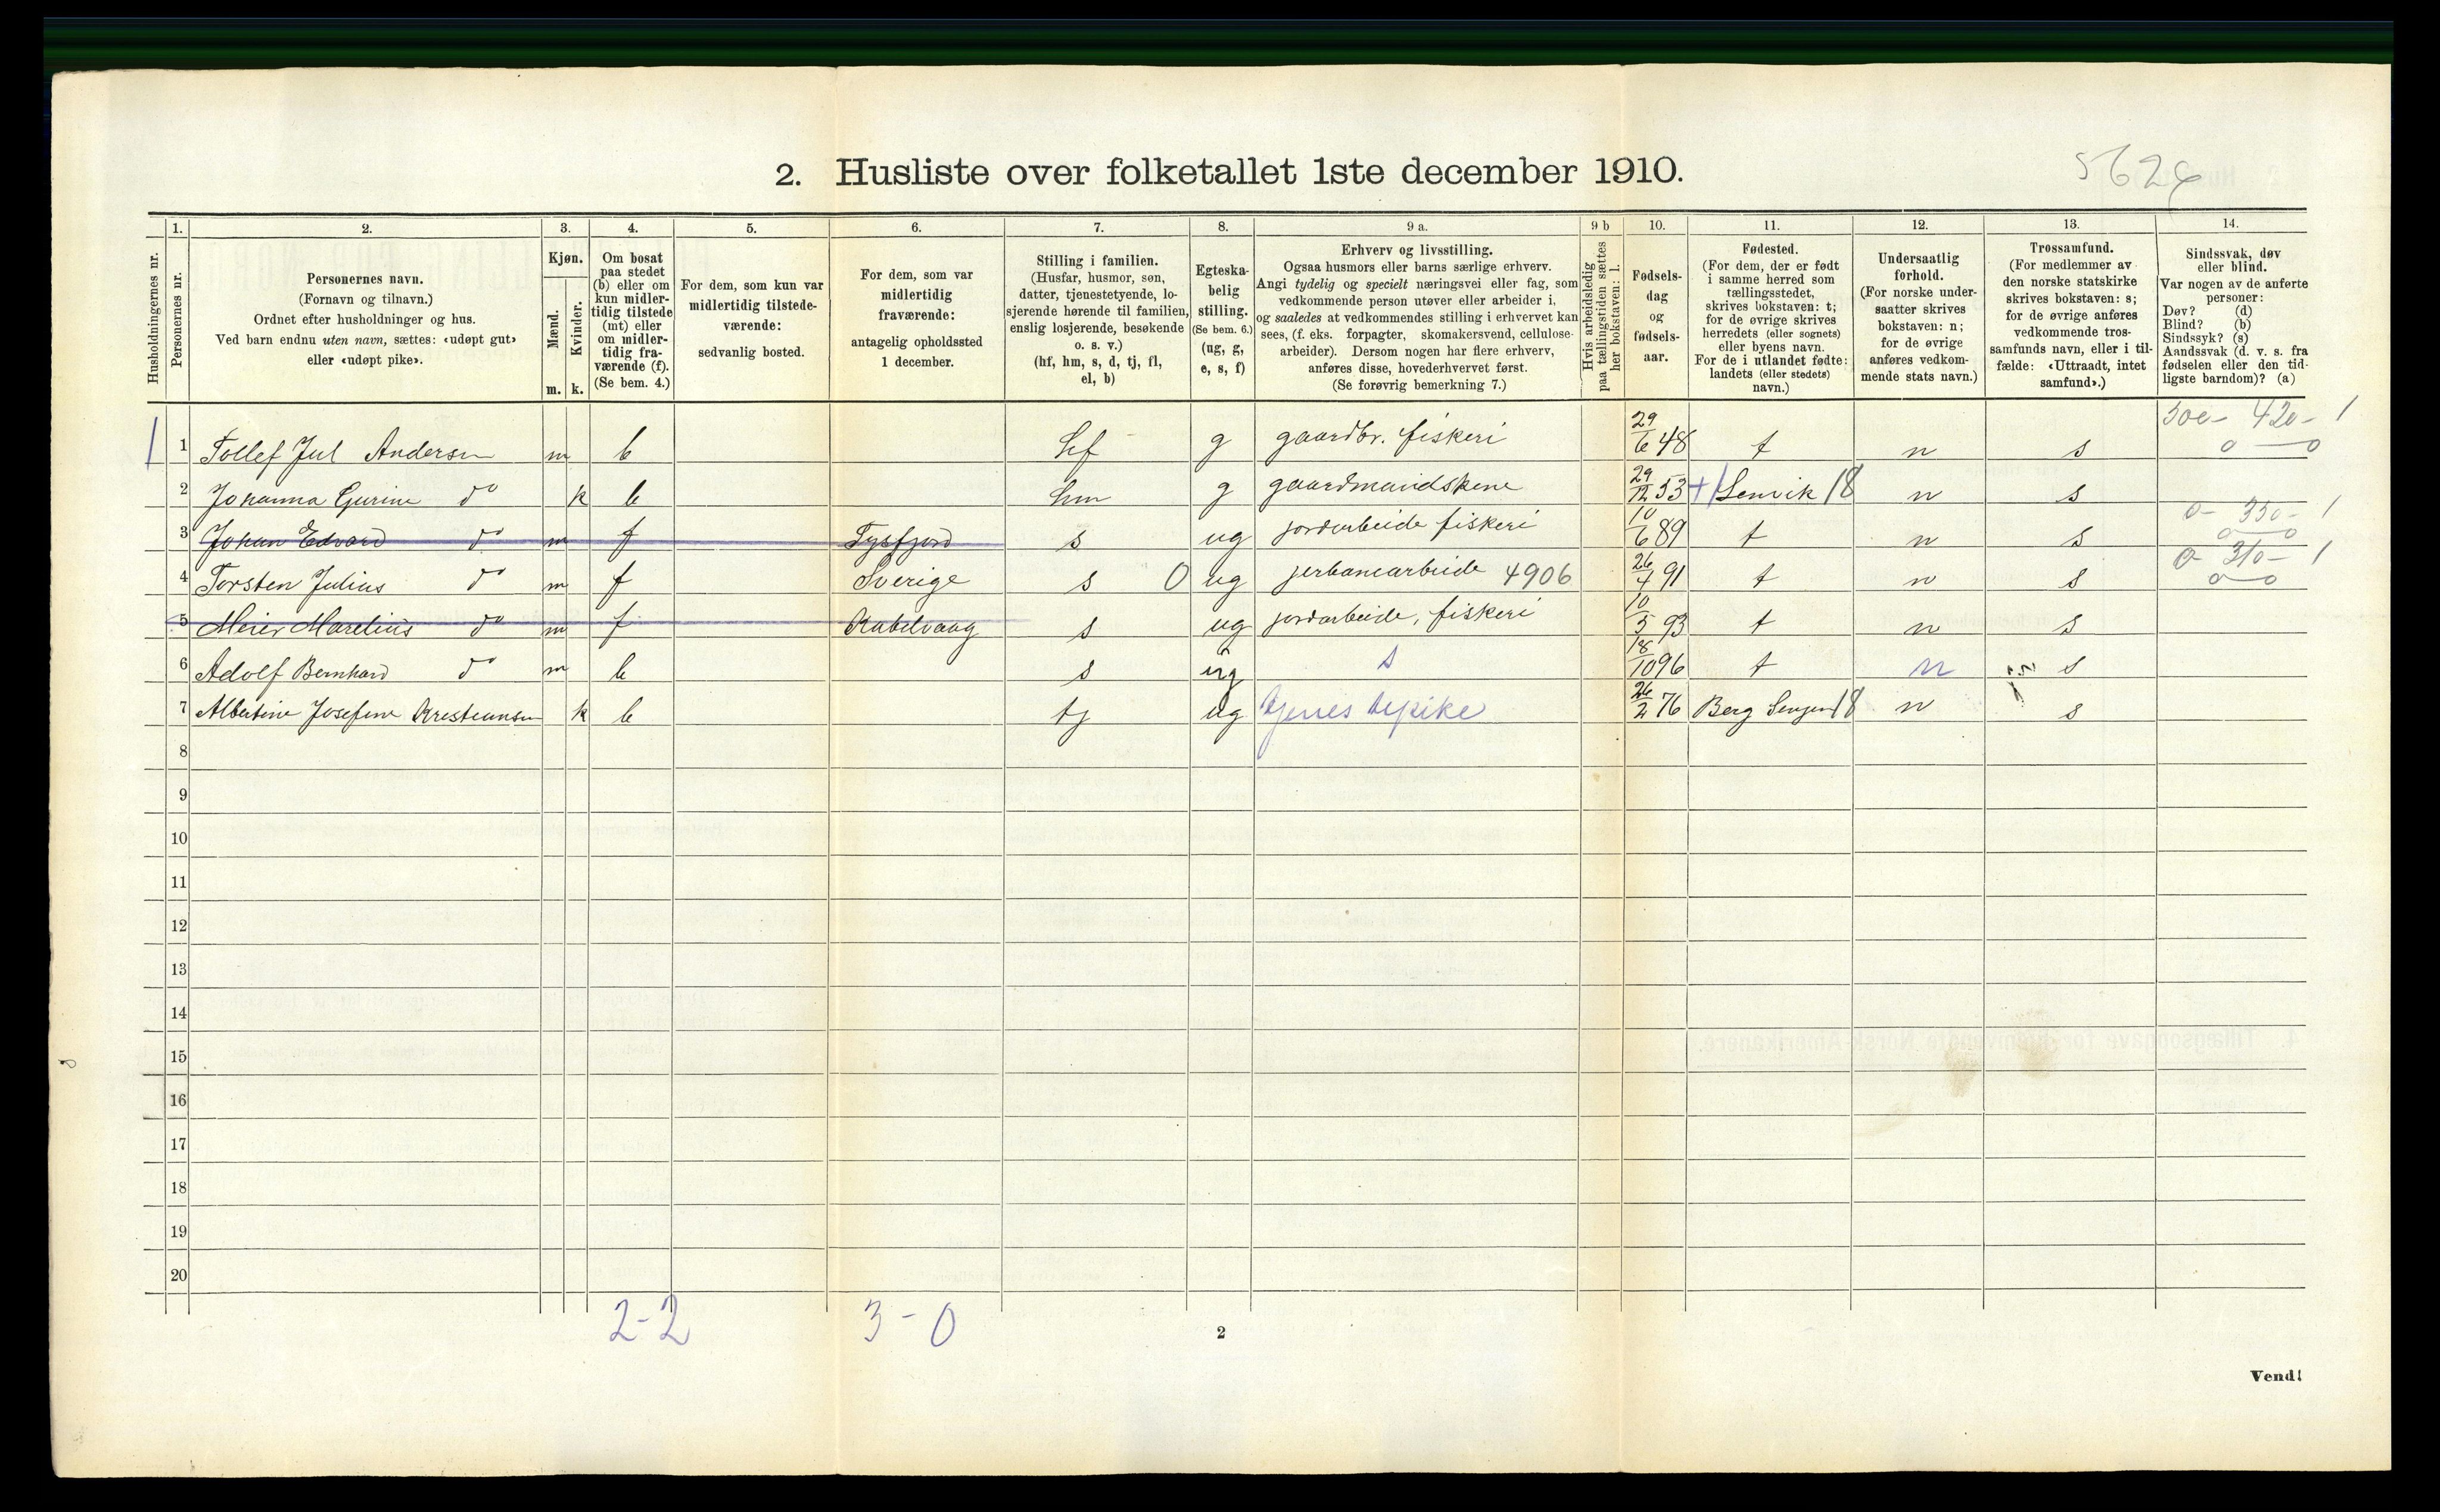 2. Husliste over folketallet 1ste december 1910.
Husholdningernes nr.
1. Personernes nr.
2. Personernes navn. (Fornavn og tilnavn.) Ordnet efter husholdninger og hus. Ved barn endnu uten navn, sættes: «udøpt gut» eller «udøpt pike».
3. Kjøn. Mænd. m. Kvinder. k.
4. Om bosat paa stedet (b) eller om kun midlertidig tilstede (mt) eller om midlertidig fraværende (f). (Se bem. 4.)
5. For dem, som kun var midlertidig tilstedeværende: sedvanlig bosted.
6. For dem, som var midlertidig fraværende: antagelig opholdssted 1 december.
7. Stilling i familien. (Husfar, husmor, søn, datter, tjenestetyende, losjerende hørende til familien, enslig losjerende, besøkende o. s. v.) (hf, hm, s, d, tj, fl, el, b)
8. Egteskabelig stilling. (Se bem. 6.) (ug, g, e, s, f)
9 a. Erhverv og livsstilling. Ogsaa husmors eller barns særlige erhverv. Angi tydelig og specielt næringsvei eller fag, som vedkommende person utøver eller arbeider i, og saaledes at vedkommendes stilling i erhvervet kan sees, (f. eks. forpagter, skomakersvend, cellulosearbeider). Dersom nogen har flere erhverv, anføres disse, hovederhvervet først. (Se forøvrig bemerkning 7.)
9 b Hvis arbeidsledig paa tællingstiden sættes her bokstaven: l.
10. Fødselsdag og fødselsaar.
11. Fødested. (For dem, der er født i samme herred som tællingsstedet, skrives bokstaven: t; for de øvrige skrives herredets (eller sognets) eller byens navn. For de i utlandet fødte: landets (eller stedets) navn.)
12. Undersaatlig forhold. (For norske undersaatter skrives bokstaven: n; for de øvrige anføres vedkommende stats navn.)
13. Trossamfund. (For medlemmer av den norske statskirke skrives bokstaven: s; for de øvrige anføres vedkommende trossamfunds navn, eller i tilfælde: «Uttraadt, intet samfund».)
14. Sindssvak, døv eller blind. Var nogen av de anførte personer: Døv? (d) Blind? (b) Sindssyk? (s) Aandssvak (d. v. s. fra fødselen eller den tidligste barndom)? (a)
500- 420- 1
1 1 Tollef Jul Andersen m b hf g gaardbr. fiskeri 29/6 48 t n s 0 — 0
2 Johanna Gurine do k b hm g gaardmandskone 29/12 53 Lenvik 18 n s
0- 350- 1
3 Johan Edvard do m f Tysfjord s ug jordarbeide fiskeri 10/6 89 t n s 0 — 0
0 310- 1
4 Torsten Julius do m f Sverige s 0 ug jerbanearbeide 4906 26/4 91 t n s 0 — 0
5 Meier Marelius do m f Kabelvaag s ug jordarbeide, fiskeri 10/5 93 t n s
6 Adolf Bernhard do m b s ug s 18/10 96 t n s
7 Albertine Josefine Kristiansen k b tj ug tjenestepike 26/2 76 Berg Senjen 18 n s
8
9
10
11
12
13
14
15
16
17
18
19
20
2-2 3-0
2
Vend!